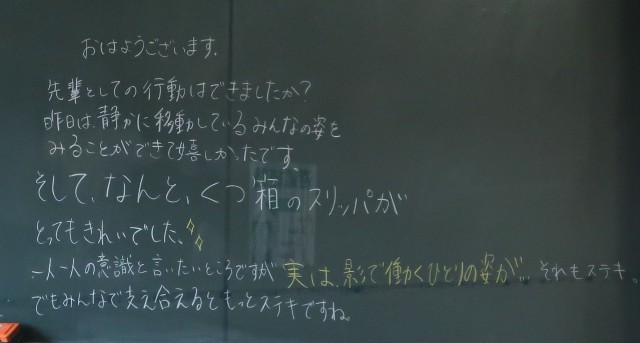 おはようございます。
先輩としての行動はできましたか?
昨日は、静かに移動しているみんなの姿を
みることができて嬉しかったです。
そして、なんと、くつ箱のスリッパが
とってもきれいでした。
一人一人の意識と言いたいところですが 実は、影で働くひとりの姿が… それもステキ。
でもみんなで支え合えるともっとステキですね。